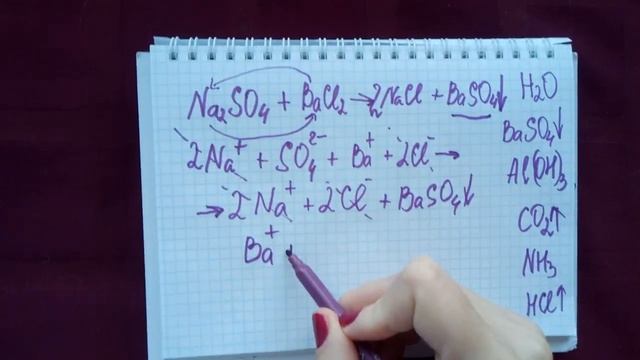 Na₂SO₄ + BaCl₂ → 2NaCl + BaSO₄↓
2Na⁺ + SO₄²⁻ + Ba⁺ + 2Cl⁻ →
→ 2Na⁺ + 2Cl⁻ + BaSO₄↓
Ba⁺
H₂O
BaSO₄↓
Al(OH)₃
CO₂↑
NH₃
HCl↑